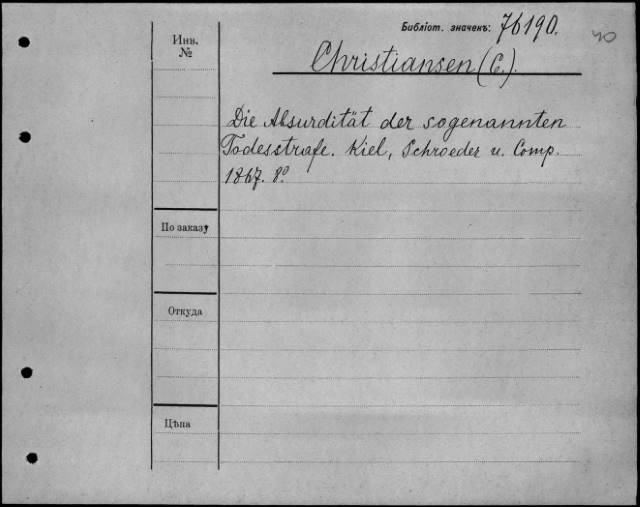 Библіот. значекъ: 76190.
40
Инв.
№
Christiansen (C.).
Die Absurdität der sogenannten
Todesstrafe. Kiel, Schroeder u. Comp.
1867. 8º
По заказу
Откуда
Цѣна